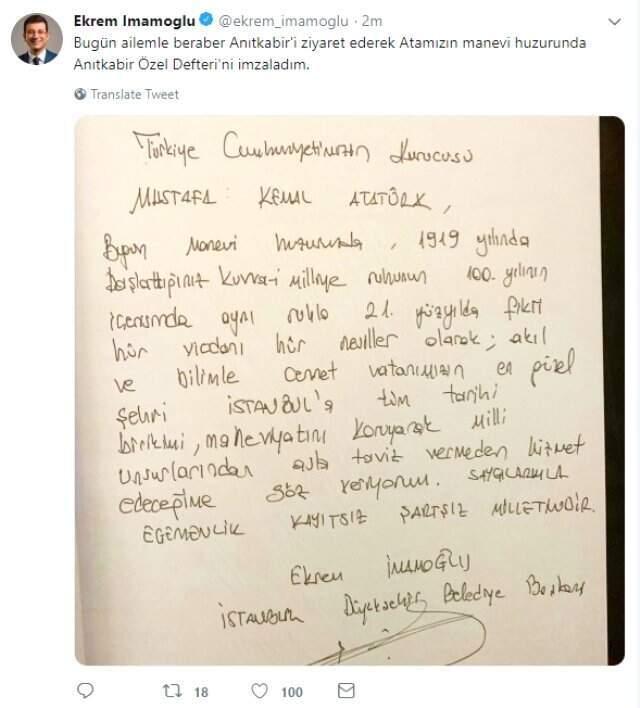 Ekrem Imamoglu @ekrem_imamoglu · 2m
Bugün ailemle beraber Anıtkabir'i ziyaret ederek Atamızın manevi huzurunda
Anıtkabir Özel Defteri'ni imzaladım.
Translate Tweet
Türkiye Cumhuriyeti'mizin Kurucusu
MUSTAFA KEMAL ATATÜRK,
Bugün Manevi huzurunuzda, 1919 yılında
başlattığınız Kuvva-i Milliye ruhunun 100. yılının
içerisinde aynı ruhla 21. yüzyılda fikri
hür vicdanı hür nesiller olarak; akıl
ve bilimle cennet vatanımızın en güzel
şehri İSTANBUL'a tüm tarihi
birikimi, maneviyatını koruyarak Milli
unsurlarından asla taviz vermeden hizmet
edeceğime söz veriyorum. SAYGILARIMLA
EGEMENLİK KAYITSIZ ŞARTSIZ MİLLETİNDİR.
Ekrem İMAMOĞLU
İSTANBUL Büyükşehir Belediye Başkanı
18 100